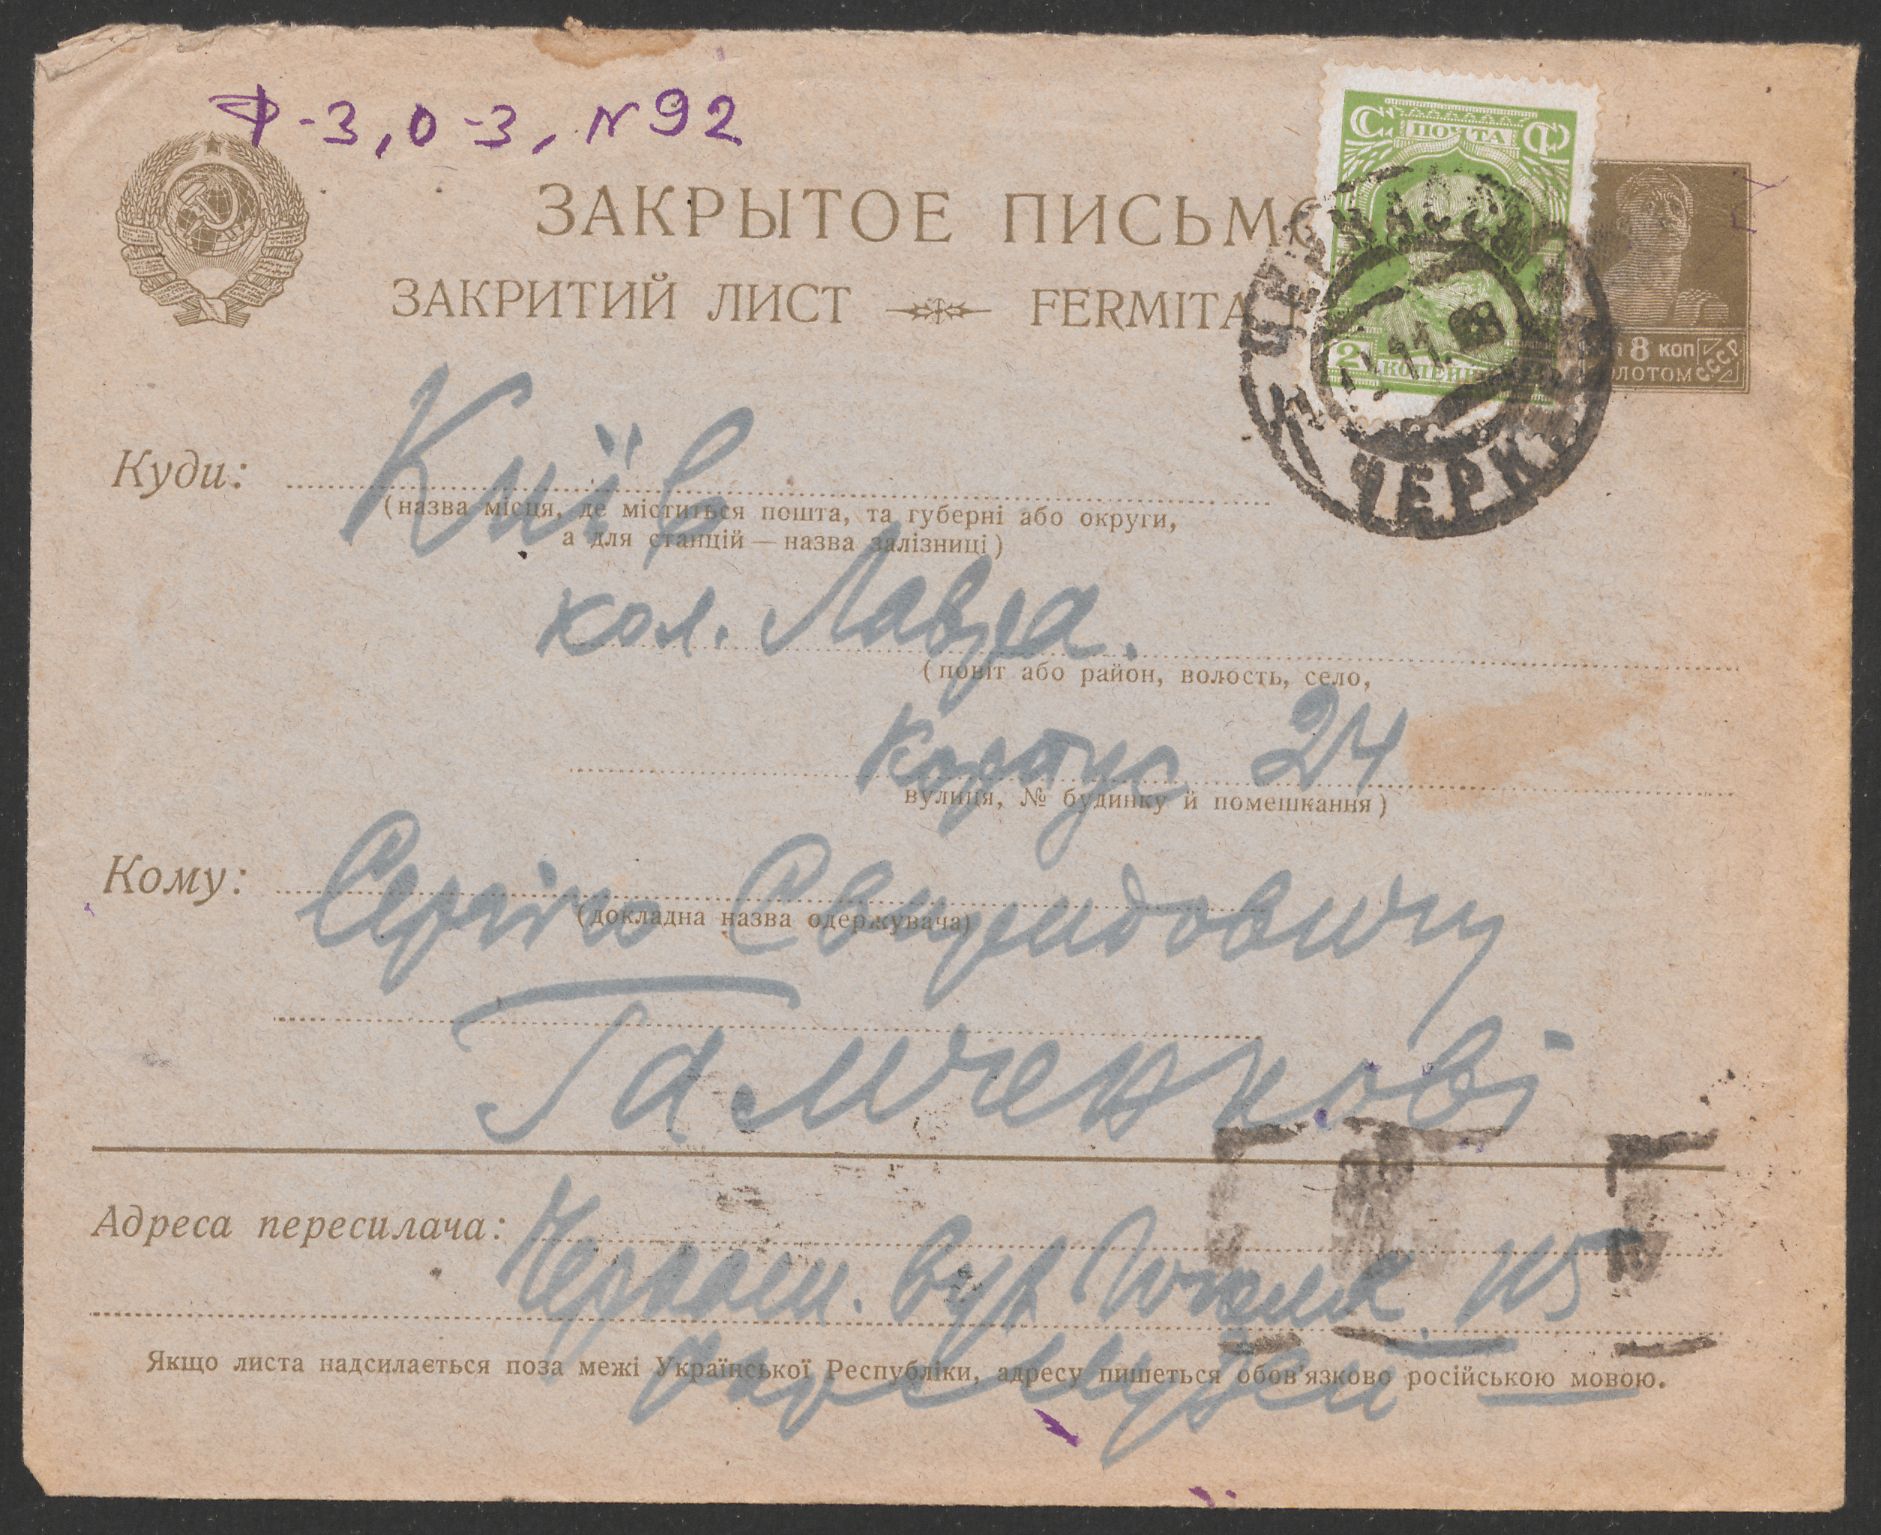 Ф-3, О-3, N 92
ЗАКРЫТОЕ ПИСЬМО
ЗАКРИТИЙ ЛИСТ FERMITA
ПОЧТА
2 КОПЕЙК
8 КОП
ЗОЛОТОМ СССР
ЧЕРКАССЫ
11.28
ЧЕРК
Куди: Київ
(назва місця, де міститься пошта, та губерні або округи,
а для станцій — назва залізниці)
кол. Лавра.
(повіт або район, волость, село,
корпус 24
вулиця, № будинку й помешкання)
Кому: Сергію Свиридовичу
(докладна назва одержувача)
Гамченкові
Адреса пересилача: Черкаси. вул
Якщо листа надсилається поза межі Української Республіки, адресу пишеться обов'язково російською мовою.
музей